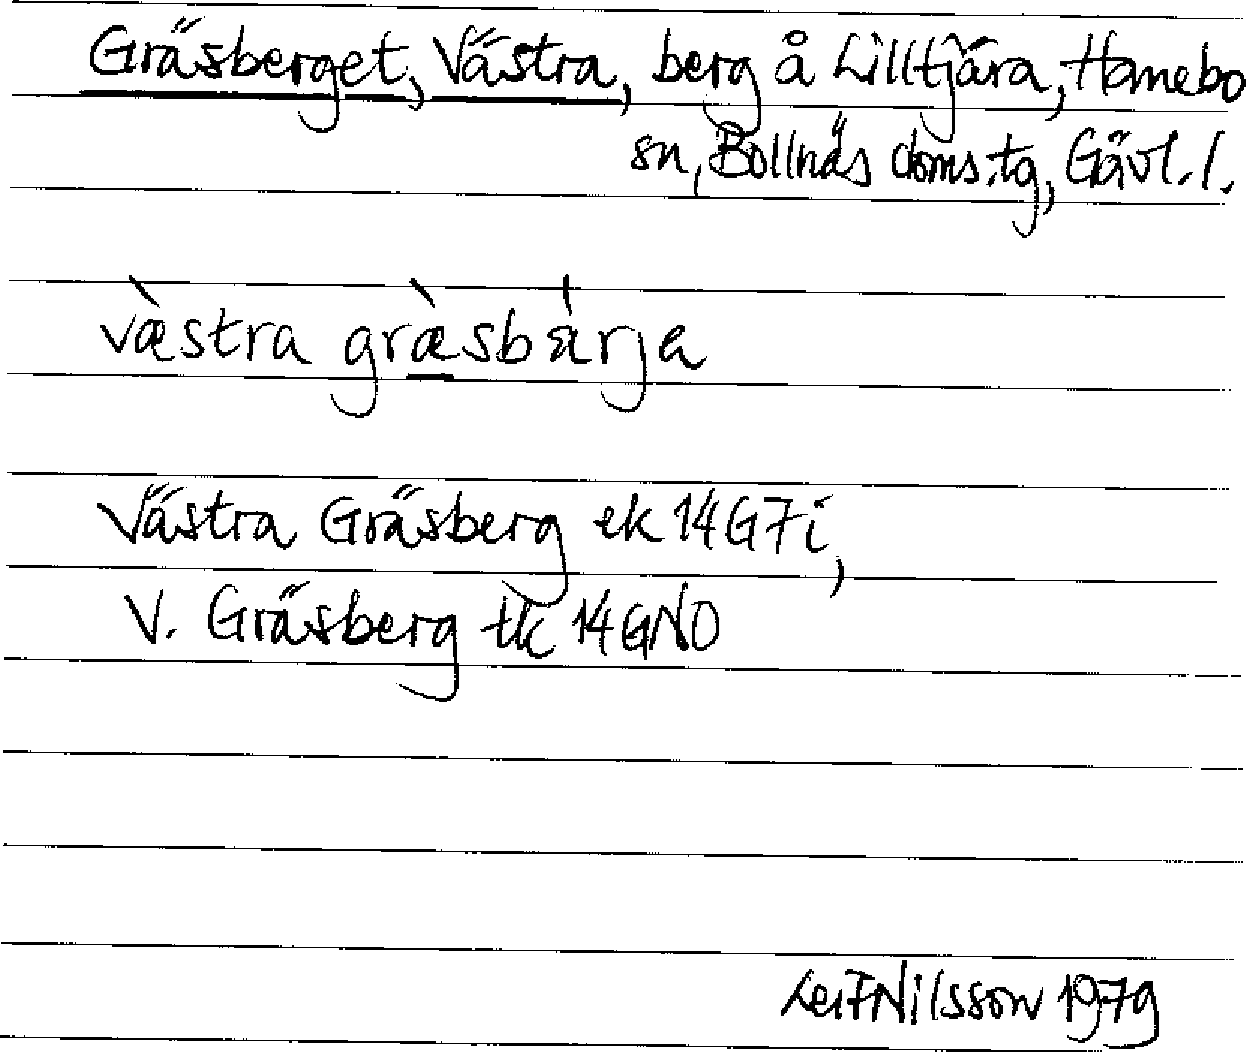 Gräsberget, Västra, berg å Lilltjära, Hamebo
sn, Bollnäs doms.tg, Gävl. l.
væ̀stra græ̀sbárja
Västra Gräsberg ek 14G7i,
V. Gräsberg tk 14GNO
Leif Nilsson 1979